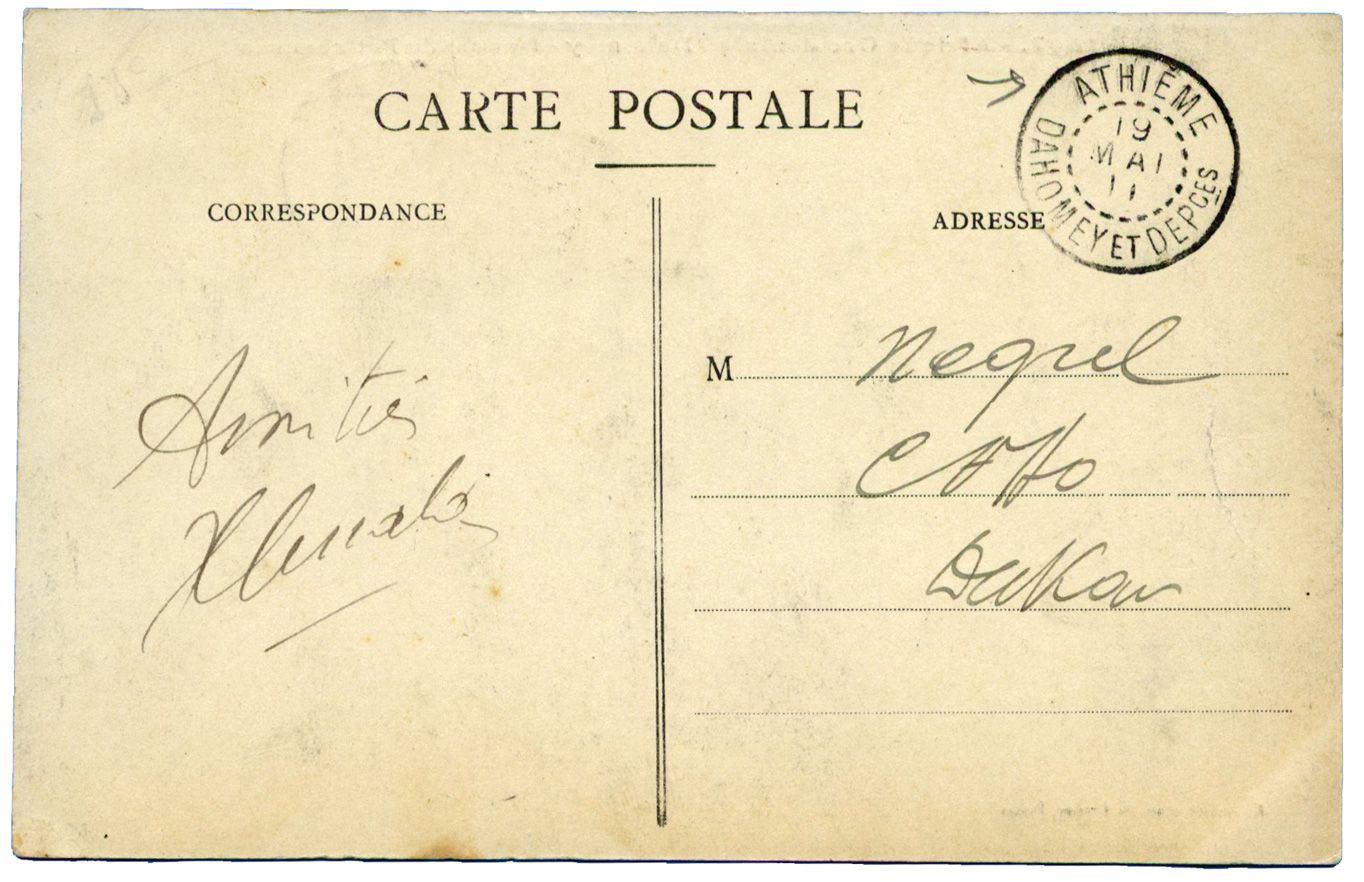 CARTE POSTALE
CORRESPONDANCE
ADRESSE
ATHIÉME
19
MAI
11
DAHOMEY ET DEPCES
Amitiés
M Negrel
Dakar